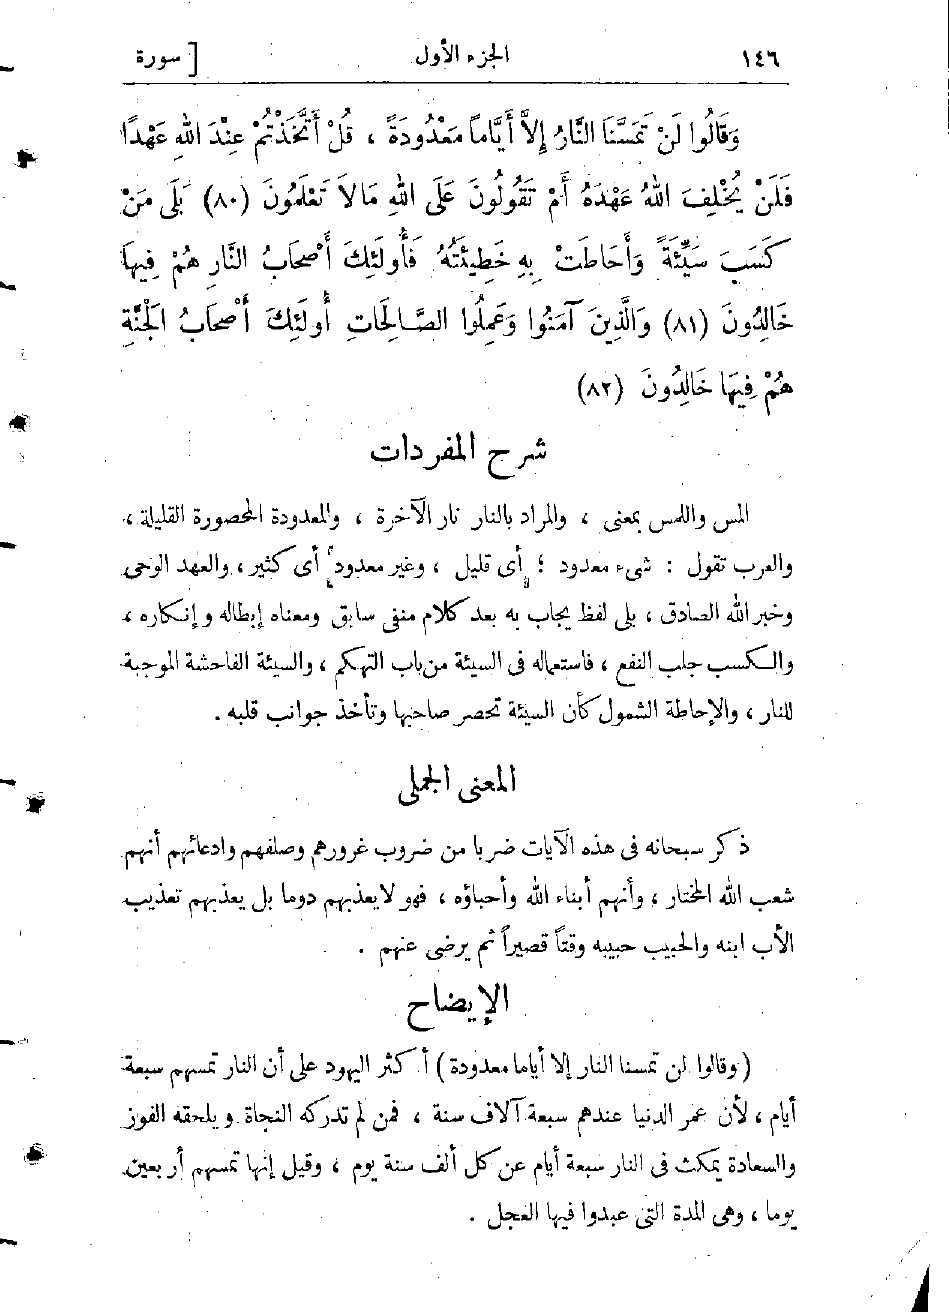 ١٤٦ الجزء الأول [ سورة
وَقَالُوا لَنْ تَمَسَّنَا النَّارُ إِلاَّ أَيَّاماً مَعْدُودَةً ، قُلْ أَتَّخَذْتُمْ عِنْدَ اللهِ عَهْدًا
فَلَنْ يُخْلِفَ اللهُ عَهْدَهُ أَمْ تَقُولُونَ عَلَى اللهِ مَالاَ تَعْلَمُونَ (٨٠) بَلَى مَنْ
كَسَبَ سَيِّئَةً وَأَحَاطَتْ بِهِ خَطِيئَتُهُ فَأُولَئِكَ أَصْحَابُ النَّارِ هُمْ فِيهَا
خَالِدُونَ (٨١) وَالَّذِينَ آمَنُوا وَعَمِلُوا الصَّالِحَاتِ أُولَئِكَ أَصْحَابُ الْجَنَّةِ
هُمْ فِيهَا خَالِدُونَ (٨٢)
شرح المفردات
المس واللمس بمعنى ، والمراد بالنار نار الآخرة ، والمعدودة المحصورة القليلة ،
والعرب تقول : شىء معدود ؛ أى قليل ، وغير معدود أى كثير ، والعهد الوحى
وخبر الله الصادق ، بلى لفظ يجاب به بعد كلام منفى سابق ومعناه إبطاله وإنكاره ،
والكسب جلب النفع ، فاستعماله فى السيئة من باب التهكم ، والسيئة الفاحشة الموجبة
للنار ، والإحاطة الشمول كأن السيئة تحصر صاحبها وتأخذ جوانب قلبه .
المعنى الجملى
ذكر سبحانه فى هذه الآيات ضربا من ضروب غرورهم وصلفهم وادعائهم أنهم
شعب الله المختار ، وأنهم أبناء الله وأحباؤه ، فهو لا يعذبهم دوما بل يعذبهم تعذيب
الأب ابنه والحبيب حبيبه وقتاً قصيراً ثم يرضى عنهم .
الإيضاح
(وقالوا لن تمسنا النار إلا أياما معدودة) أكثر اليهود على أن النار تمسهم سبعة
أيام ، لأن عمر الدنيا عندهم سبعة آلاف سنة ، فمن لم تدركه النجاة ويلحقه الفوز
والسعادة يمكث فى النار سبعة أيام عن كل ألف سنة يوم ، وقيل إنها تمسهم أربعين
يوما ، وهى المدة التى عبدوا فيها العجل .